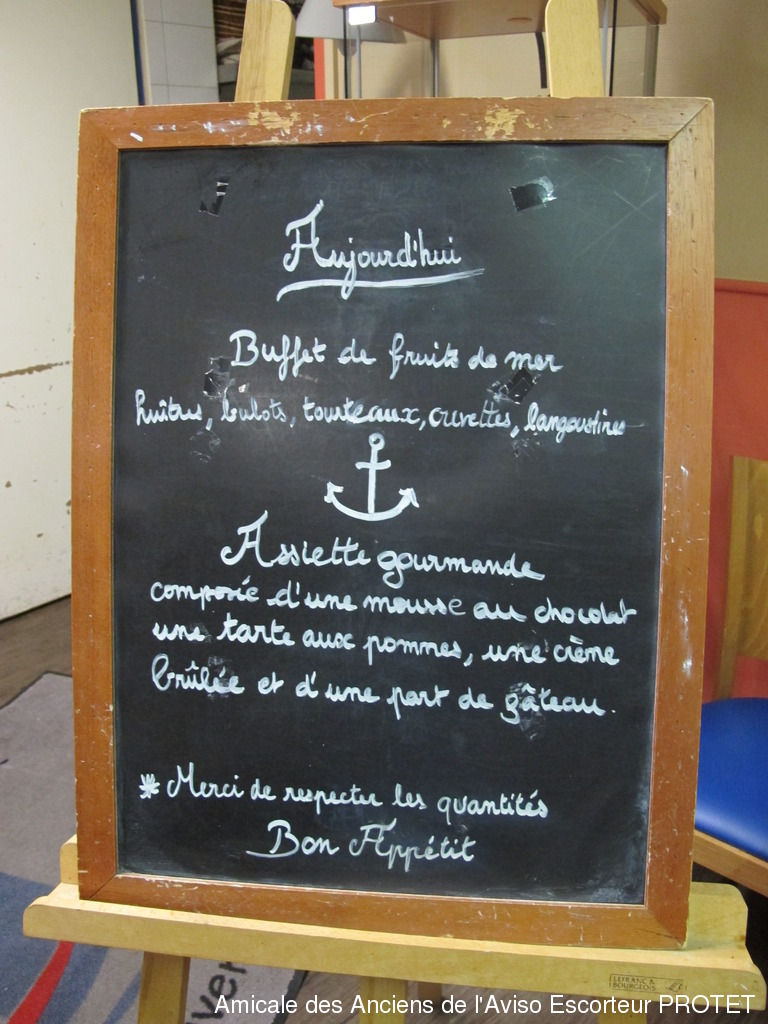 Aujourd'hui
Buffet de fruits de mer
huîtres, bulots, tourteaux, crevettes, langoustines
Assiette gourmande
composée d'une mousse au chocolat
une tarte aux pommes, une crème
brûlée et d'une part de gâteau.
* Merci de respecter les quantités
Bon Appétit
LEFRANC &
BOURGEOIS
ver
Amicale des Anciens de l'Aviso Escorteur PROTET